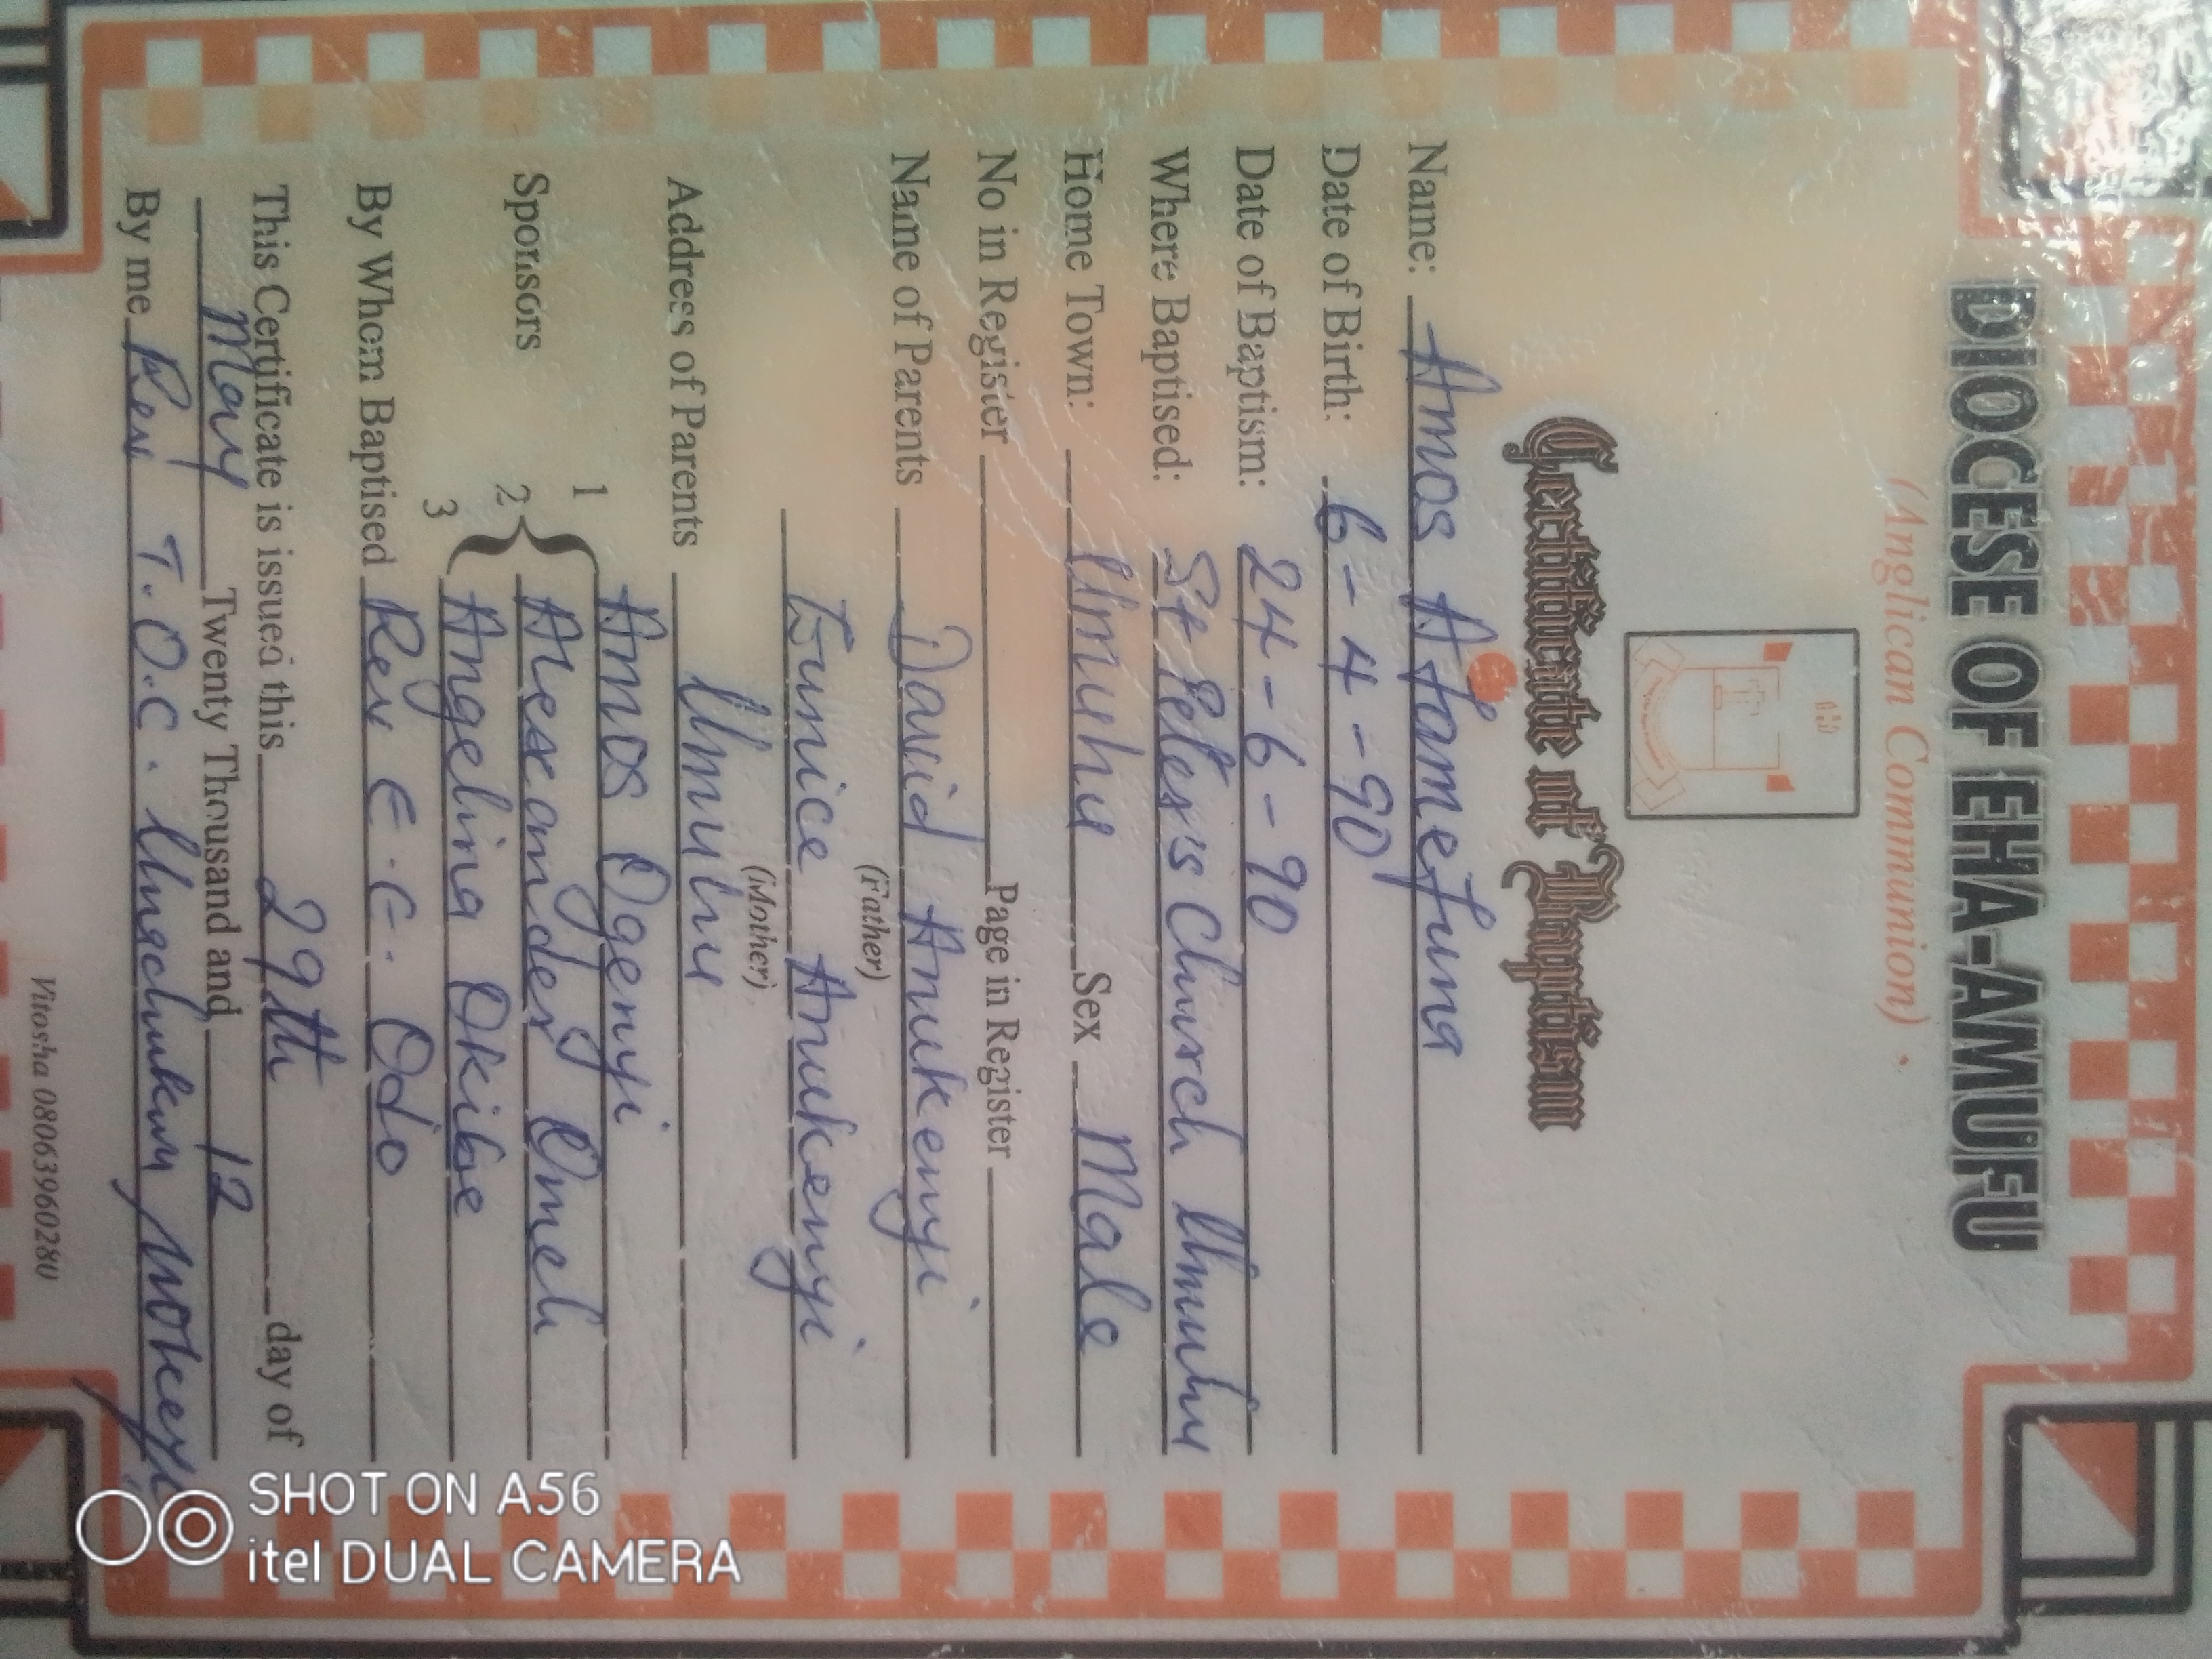 DIOCESE OF EHA-AMUFU
(Anglican Communion)
Certificate of Baptism
Name: Amos Afamefuna
Date of Birth: 6-4-90
Date of Baptism: 24-6-90
Where Baptised: St Peter's Church Umuhu
Home Town: Umuhu Sex Male
No in Register Page in Register
Name of Parents David Anukenyi
(Father)
Eunice Anukenyi
(Mother)
Address of Parents Umuhu
Sponsors
1 Amos Ogenyi
2 Alexander Omeh
3 Angelina Okibe
By Whom Baptised Rev E.C. Odo
This Certificate is issued this 29th day of
May Twenty Thousand and 12
By me Rev T.O.C.
Vitosha 08063960280
SHOT ON A56
itel DUAL CAMERA